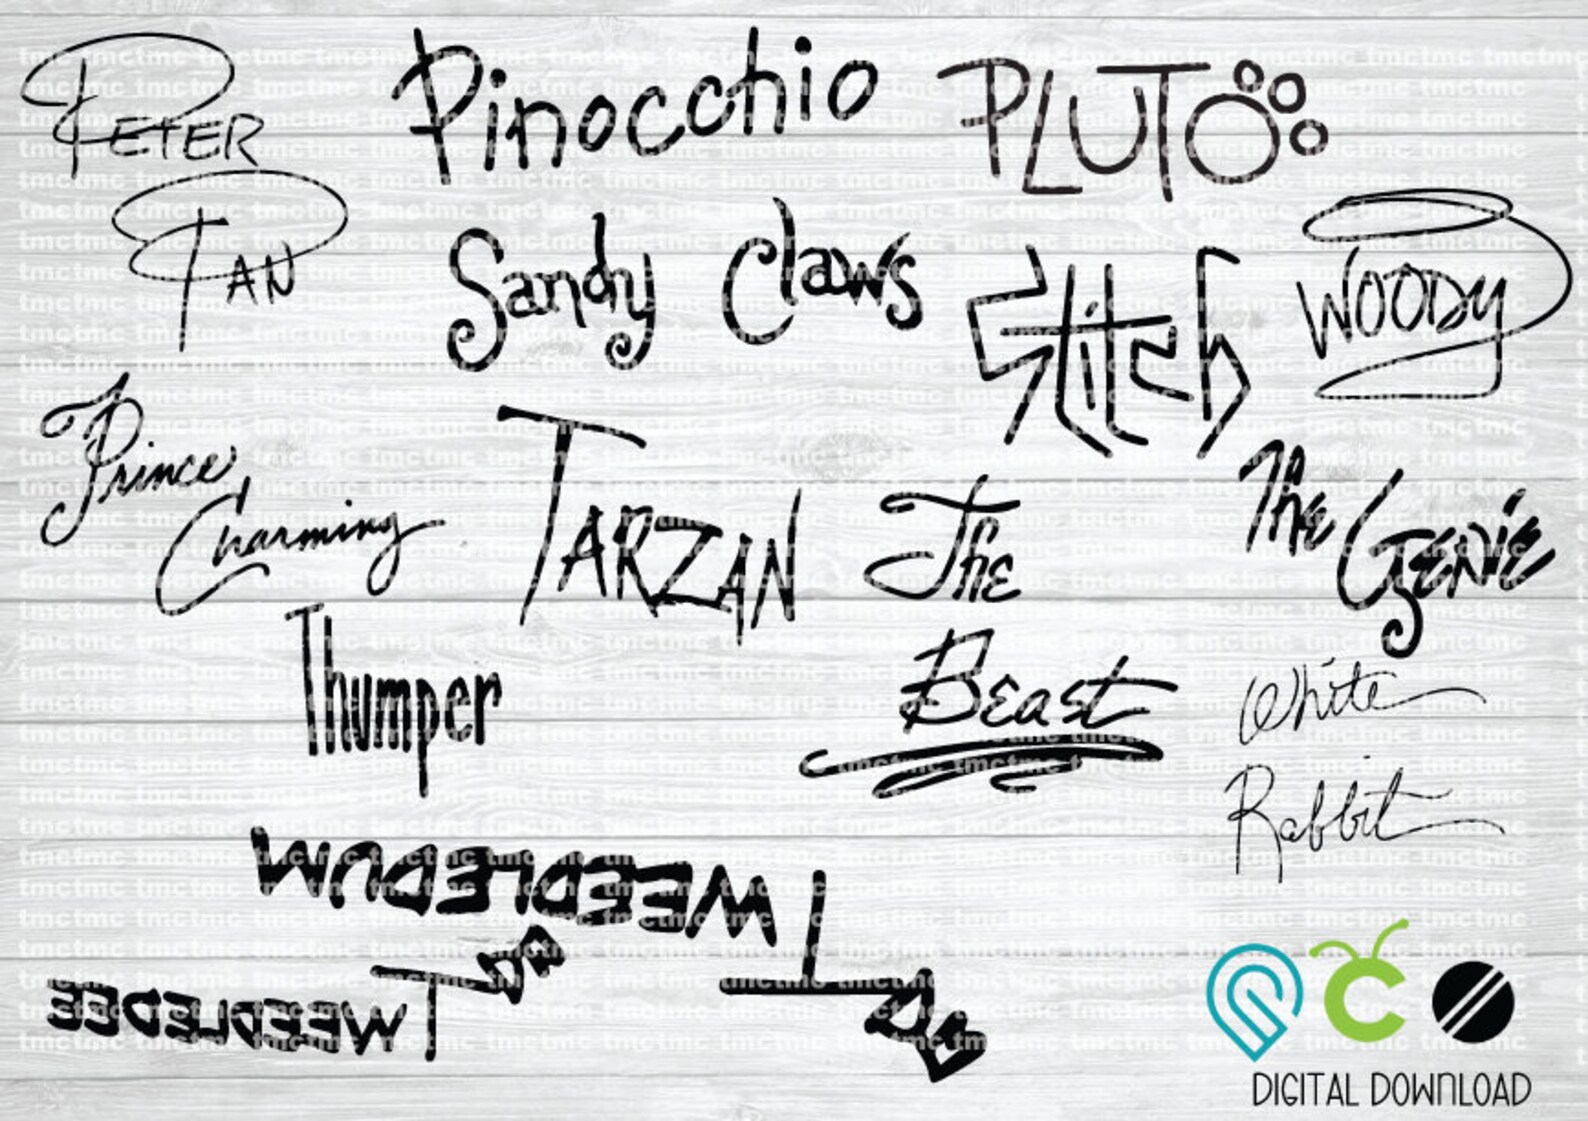 PETER
PAN
Pinocchio
PLUTO
Sandy Claws
Stitch
WOODY
Prince
Charming
TARZAN
The
Beast
The GENIE
Thumper
White
Rabbit
TWEEDLEDUM
TWEEDLEDEE
tmctmc
DIGITAL DOWNLOAD